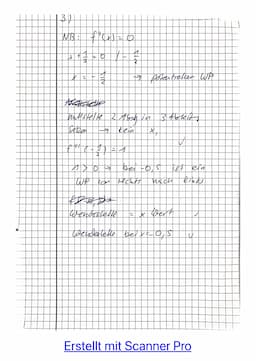 3)
NB: f''(x) = 0
x + 1/2 = 0 | - 1/2
x = - 1/2 → potentiellen WP
Nullstelle 2 Abltg in 3 Ableitg
setzen → kein x,
f'''(-1/2) = 1
1 > 0 → bei -0,5 ist ein
WP von rechts nach links
Wendestelle = x Wert
Wendestelle bei x = -0,5
Erstellt mit Scanner Pro